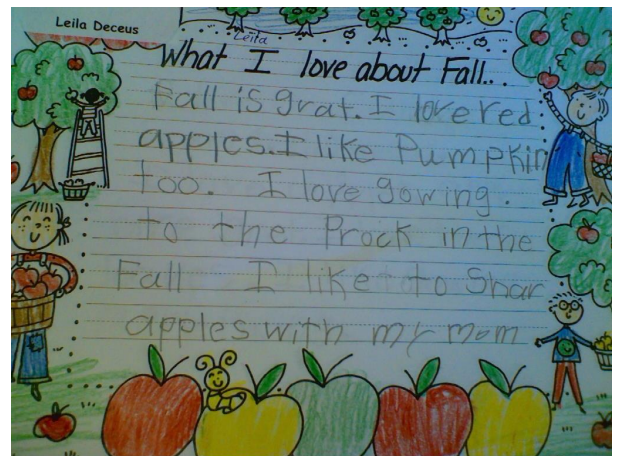 Leila Deceus
Leila
What I love about Fall...
Fall is grat. I love red
apples. I like Pumpkin
too. I love gowing.
to the Prock in the
Fall I like to Shar
apples with my mom